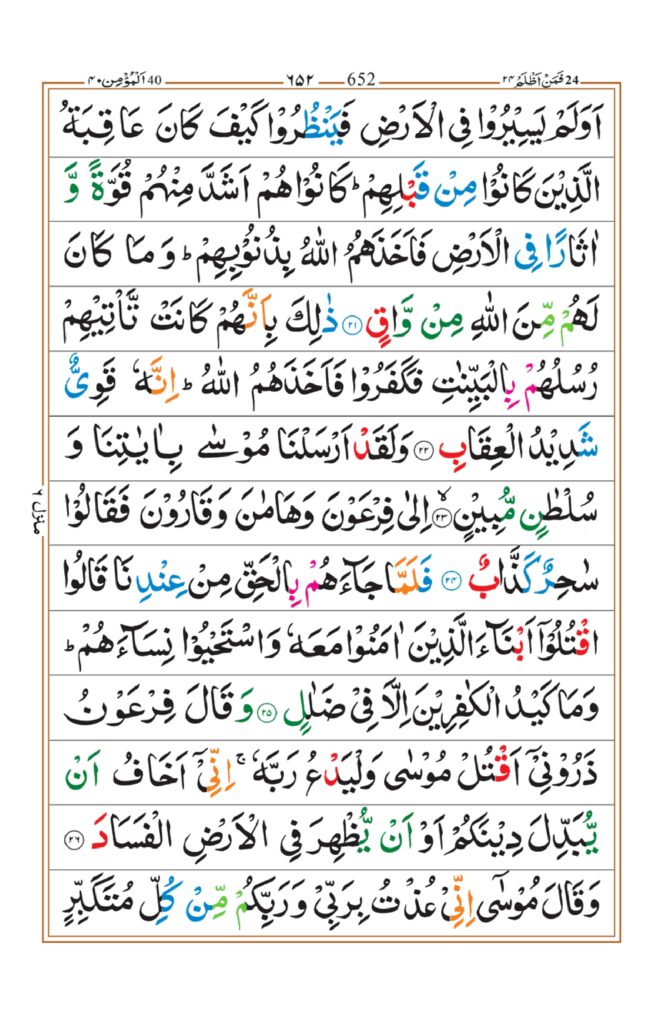 24 فَمَنْ اَظْلَمُ ٢٤ 652 ٦٥٢ 40 اَلْمُؤْمِن ٤٠
اَوَلَمْ يَسِيْرُوْا فِى الْاَرْضِ فَيَنْظُرُوْا كَيْفَ كَانَ عَاقِبَةُ
الَّذِيْنَ كَانُوْا مِنْ قَبْلِهِمْ ؕ كَانُوْا هُمْ اَشَدَّ مِنْهُمْ قُوَّةً وَّ
اٰثَارًا فِى الْاَرْضِ فَاَخَذَهُمُ اللّٰهُ بِذُنُوْبِهِمْ ؕ وَ مَا كَانَ
لَهُمْ مِّنَ اللّٰهِ مِنْ وَّاقٍ ۝٢١ ذٰلِكَ بِاَنَّهُمْ كَانَتْ تَّاْتِيْهِمْ
رُسُلُهُمْ بِالْبَيِّنٰتِ فَكَفَرُوْا فَاَخَذَهُمُ اللّٰهُ ؕ اِنَّهٗ قَوِىٌّ
شَدِيْدُ الْعِقَابِ ۝٢٢ وَلَقَدْ اَرْسَلْنَا مُوْسٰى بِاٰيٰتِنَا وَ
سُلْطٰنٍ مُّبِيْنٍ ۙ‏۝٢٣ اِلٰى فِرْعَوْنَ وَهَامٰنَ وَقَارُوْنَ فَقَالُوْا
سٰحِرٌ كَذَّابٌ ۝٢٤ فَلَمَّا جَآءَهُمْ بِالْحَقِّ مِنْ عِنْدِنَا قَالُوا
اقْتُلُوْۤا اَبْنَآءَ الَّذِيْنَ اٰمَنُوْا مَعَهٗ وَاسْتَحْيُوْا نِسَآءَهُمْ ؕ
وَمَا كَيْدُ الْكٰفِرِيْنَ اِلَّا فِىْ ضَلٰلٍ ۝٢٥ وَقَالَ فِرْعَوْنُ
ذَرُوْنِىْۤ اَقْتُلْ مُوْسٰى وَلْيَدْعُ رَبَّهٗ ۚ اِنِّىْۤ اَخَافُ اَنْ
يُّبَدِّلَ دِيْنَكُمْ اَوْ اَنْ يُّظْهِرَ فِى الْاَرْضِ الْفَسَادَ ۝٢٦
وَقَالَ مُوْسٰٓى اِنِّىْ عُذْتُ بِرَبِّىْ وَرَبِّكُمْ مِّنْ كُلِّ مُتَكَبِّرٍ
منزل ٦